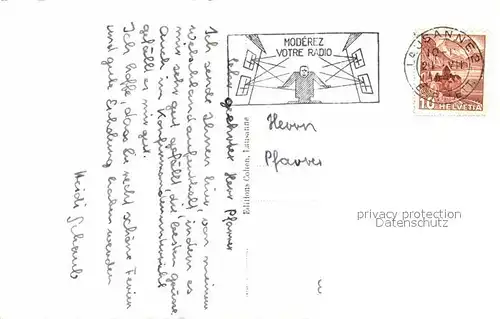 Sehr geehrter Herr Pfarrer
Ich sende Ihnen hier, von meinem
Welschlandaufenthalt, indem es
mir sehr gut gefällt, die besten Grüsse.
Auch im Konfirmandenunterricht
gefällt es mir gut.
Ich hoffe, dass Sie recht schöne Ferien
und gute Erholung haben werden
Heidi Schaub
MODÉREZ
VOTRE RADIO
LAUSANNE
10 HELVETIA
Herrn
Pfarrer
Editions Cohen, Lausanne
privacy protection
Datenschutz